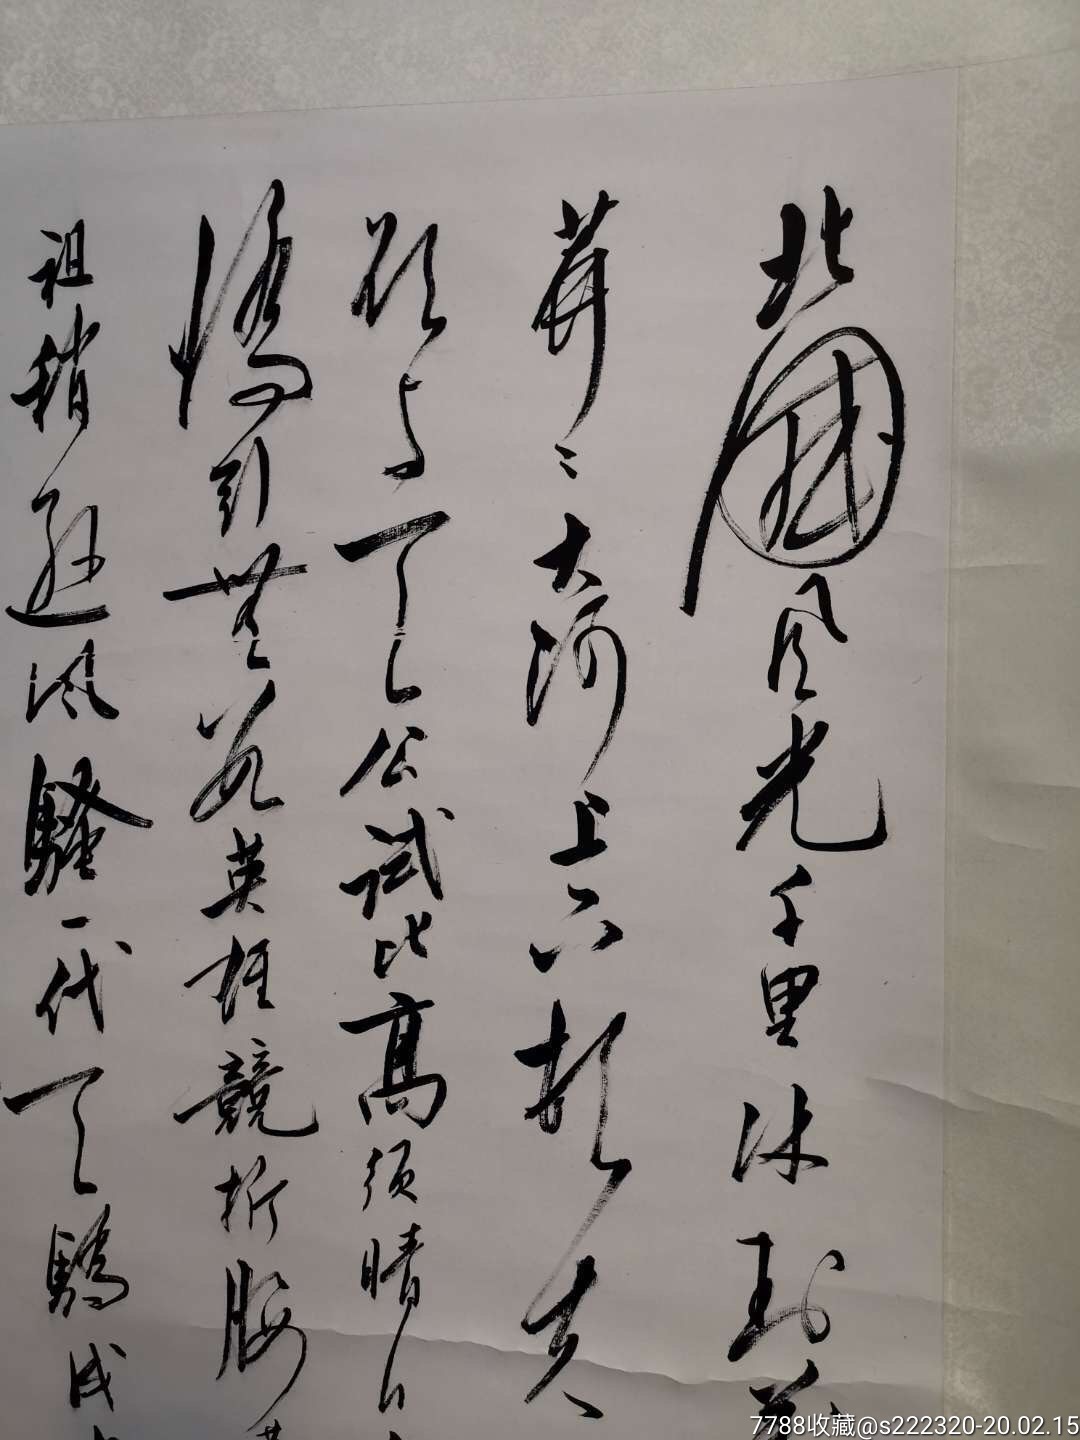 北國風光千里冰封萬
莽〻大河上下頓失
欲与天公試比高須晴日
嬌引無數英雄競折腰
祖稍遜風騷一代天驕成
7788收藏@s222320-20.02.15